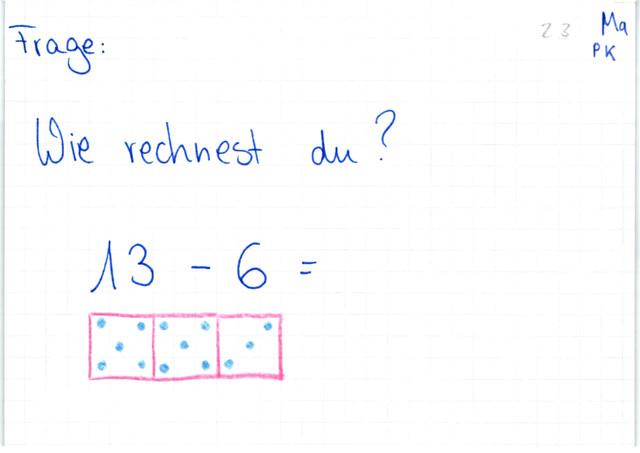 23 Ma
PK
Frage:
Wie rechnest du?
13 - 6 =